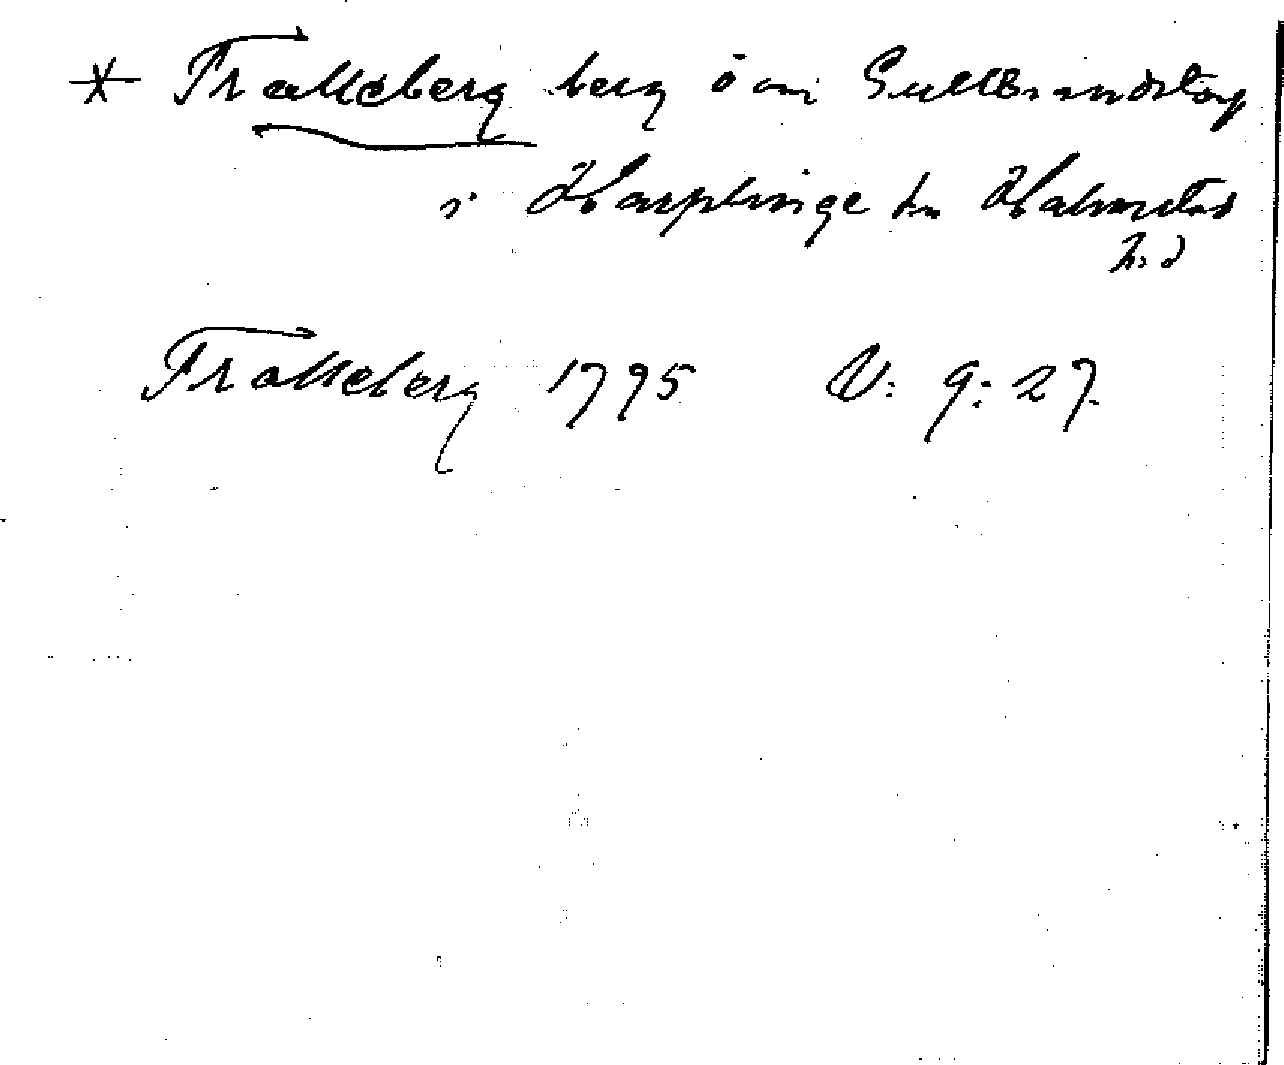 * Tralleberg berg ö om Gullbrandstorp
i Harplinge sn Halmstad
h.d
Tralleberg 1795 V: 9: 27.